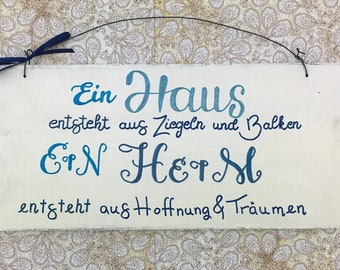 Ein Haus
entsteht aus Ziegeln und Balken
EiN HEiM
entsteht aus Hoffnung & Träumen